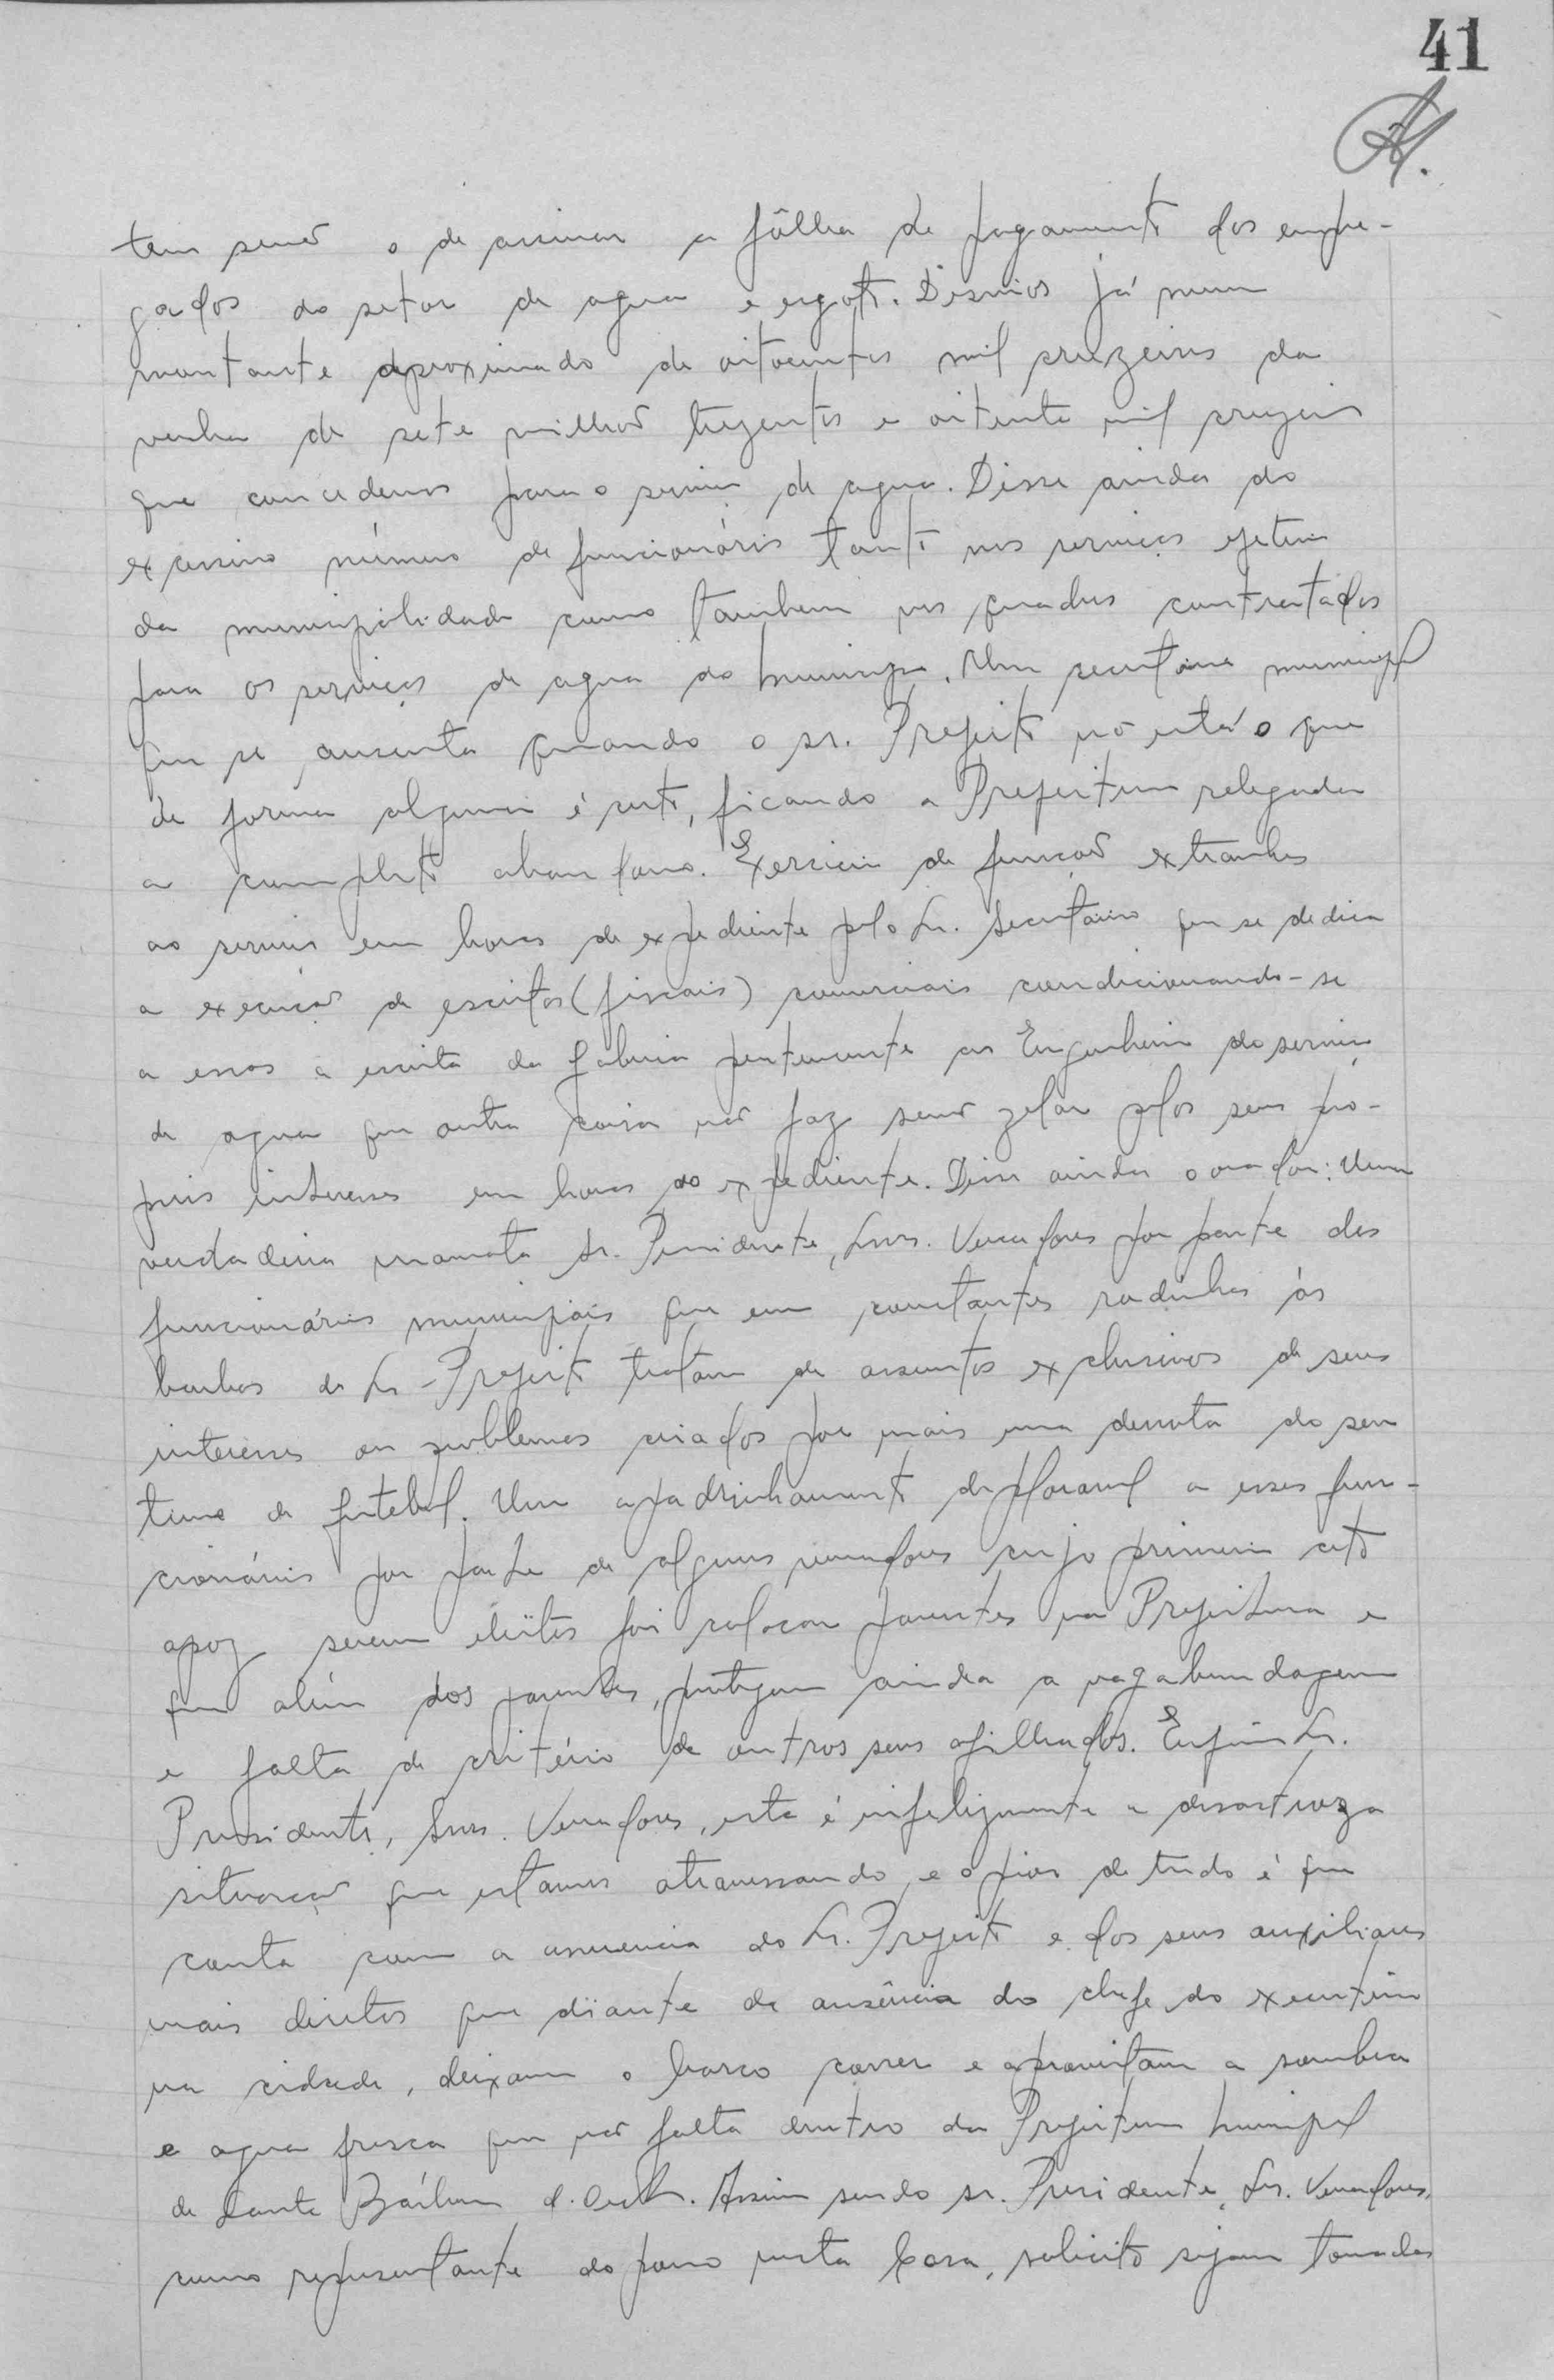 41
tem senão o de assinar a fôlha de pagamento dos empre-
gados do setor de agua e esgoto. Desvios já num
montante aproximado de oitocentos mil cruzeiros da
verba de sete milhões trezentos e oitenta mil cruzeiros
que concedemos para o serviço de agua. Disse ainda do
excessivo número de funcionários tanto nos serviços efetivos
da municipalidade como tambem nos quadros contratados
para os serviços de agua do Municipio. Um secretário municipal
que se ausenta quando o sr. Prefeito não está o que
de forma alguma é certo, ficando a Prefeitura relegada
a completo abandono. Exercicio de funções extranhas
ao serviço em horas de expediente pelo Sr. Secretário que se dedica
a execução de escritas (fiscais) comerciais condicionando-se
a essas a escrita da fabrica pertencente ao Engenheiro do serviço
de agua que outra coisa não faz senão zelar pelos seus pro-
prios interesses em horas do expediente. Disse ainda o orador: Uma
verdadeira mamata Sr. Presidente, Snrs. Vereadores por parte dos
funcionários municipais que em constantes rodinhas ás
barbas do Sr. Prefeito tratam de assuntos exclusivos de seus
interesses ou problemas criados por mais uma derrota do seu
time de futebol. Um apadrinhamento deploravel a esses fun-
cionários por parte de alguns vereadores cujo primeiro ato
apoz serem eleitos foi colocar parentes na Prefeitura e
que além dos parentes, protegem ainda a vagabundagem
e falta de critério de outros seus afilhados. Enfim Sr.
Presidente, Snrs. Vereadores, esta é infelizmente a desastroza
situação que estamos atravessando, e o pior de tudo é que
conta com a anuencia do Sr. Prefeito e dos seus auxiliares
mais diretos que diante da ausência do chefe do executivo
na cidade, deixam o barco correr e aproveitam a sombra
e agua fresca que não falta dentro da Prefeitura Municipal
de Santa Bárbara d'Oeste. Assim sendo sr. Presidente, Srs. Vereadores,
como representante do povo nesta Casa, solicito sejam tomadas